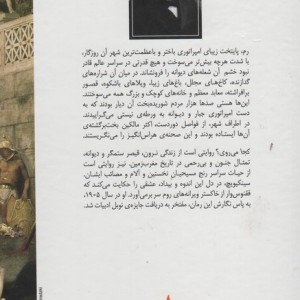 رم، پایتخت زیبای امپراتوری باختر و باعظمت‌ترین شهر آن روزگار،
با شدت هرچه بیش‌تر می‌سوخت و هیچ قدرتی در سراسر عالم قادر
نبود خشم آن شعله‌های دیوانه را فرونشاند. در میان آن شراره‌های
گدازنده، کاخ‌های مجلل، باغ‌های زیبا، ویلاهای باشکوه، قصور
امپراطور، معابد معظم و خانه‌های کوچک و بزرگ همه می‌سوختند.
این‌ها هستی صدها هزار مردم شوریده‌بخت آن دیار بودند که به
دست امپراتوری جبار و دیوانه به ورطه‌ی نیستی می‌گراییدند.
در اطراف شهر، از فواصل دوردست، اکثر مالکین بخت‌برگشته‌ی
آن‌ها ایستاده بودند و این صحنه‌ی هراس‌انگیز را می‌نگریستند.
کجا می‌روی؟ روایتی است از زندگی نرون، قیصر ستمگر و دیوانه،
تمثال جنون و بی‌رحمی در تاریخ مغرب‌زمین. نیز روایتی است
از حیات سراسر رنج مسیحیان نخستین و آلام و مصائب ایشان.
سینکیویچ، در دل این اندوه و بیداد، عشقی را حکایت می‌کند که
ققنوس‌وار از خاکستر ویرانه‌های روم سر برمی‌آورد. او در سال ۱۹۰۵،
به پاس نگارش این رمان، مفتخر به دریافت جایزه‌ی نوبل ادبیات شد.